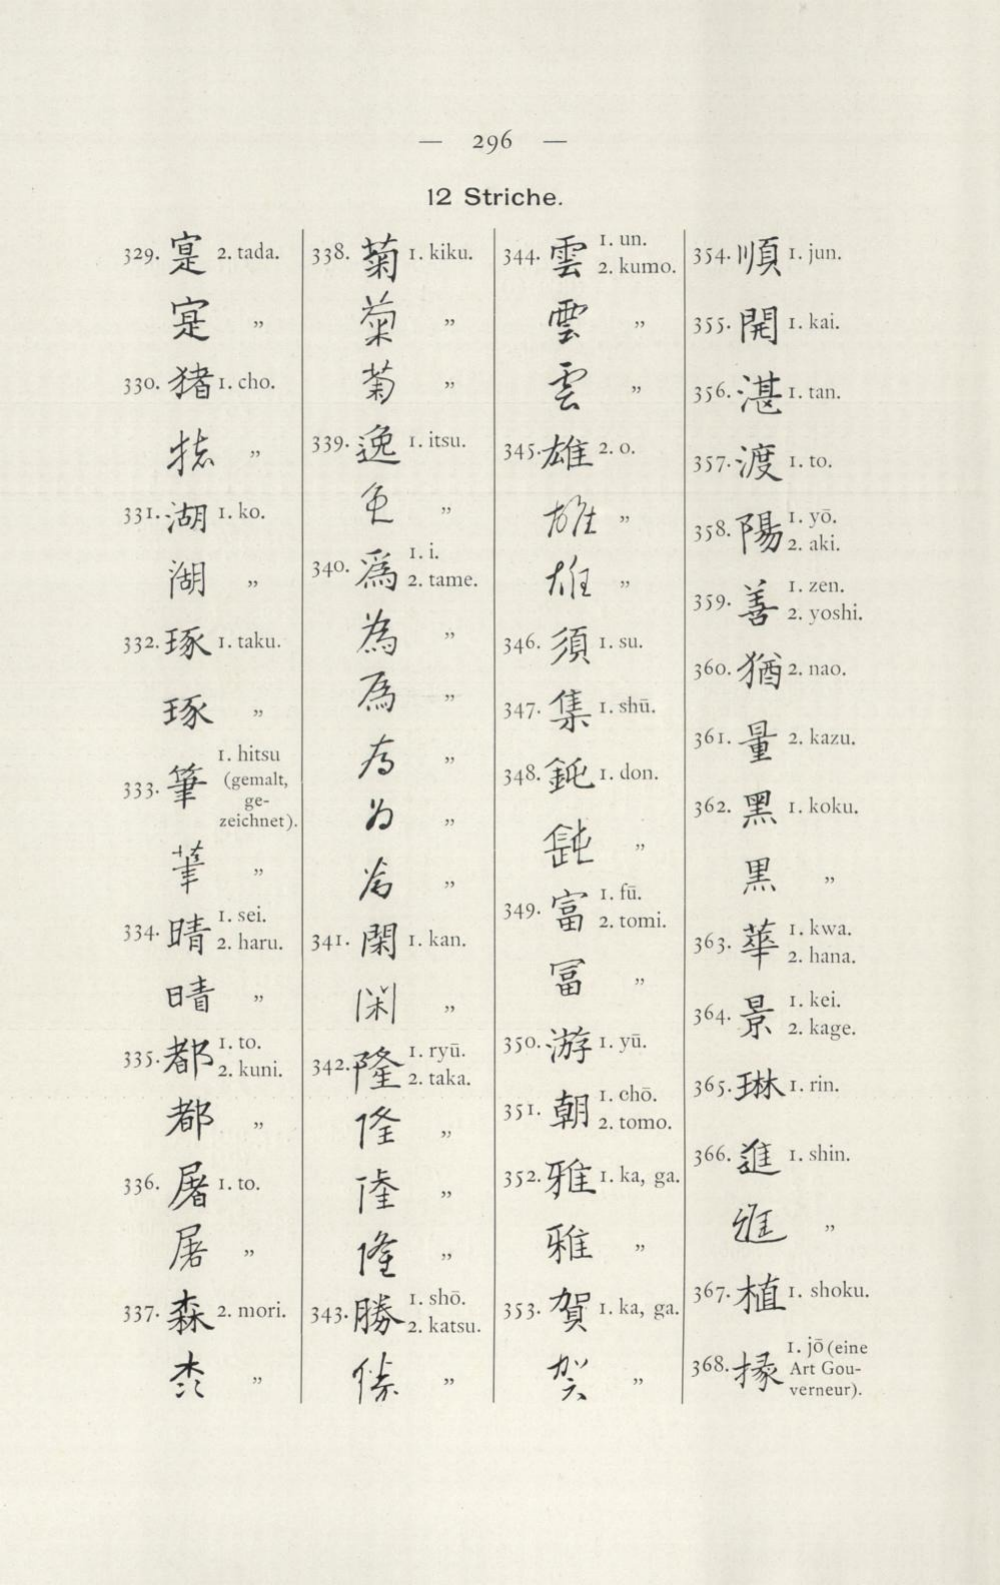 — 296 —
12 Striche.
329. 寔 2. tada.
寔 „
330. 猪 1. cho.
„
331. 湖 1. ko.
湖 „
332. 琢 1. taku.
琢 „
333. 筆 1. hitsu
(gemalt,
ge-
zeichnet).
筆 „
334. 晴 1. sei.
2. haru.
晴 „
335. 都 1. to.
2. kuni.
都 „
336. 屠 1. to.
屠 „
337. 森 2. mori.
森 „
338. 菊 1. kiku.
菊 „
菊 „
339. 逸 1. itsu.
„
340. 爲 1. i.
2. tame.
為 „
爲 „
„
为 „
„
341. 閑 1. kan.
閑 „
342. 隆 1. ryū.
2. taka.
隆 „
隆 „
隆 „
343. 勝 1. shō.
2. katsu.
„
344. 雲 1. un.
2. kumo.
雲 „
雲 „
345. 雄 2. o.
雄 „
雄 „
346. 須 1. su.
347. 集 1. shū.
348. 鈍 1. don.
鈍 „
349. 富 1. fū.
2. tomi.
冨 „
350. 游 1. yū.
351. 朝 1. chō.
2. tomo.
352. 雅 1. ka, ga.
雅 „
353. 賀 1. ka, ga.
賀 „
354. 順 1. jun.
355. 開 1. kai.
356. 湛 1. tan.
357. 渡 1. to.
358. 陽 1. yō.
2. aki.
359. 善 1. zen.
2. yoshi.
360. 猶 2. nao.
361. 量 2. kazu.
362. 黑 1. koku.
黒 „
363. 華 1. kwa.
2. hana.
364. 景 1. kei.
2. kage.
365. 琳 1. rin.
366. 進 1. shin.
進 „
367. 植 1. shoku.
368. 掾 1. jō (eine
Art Gou-
verneur).